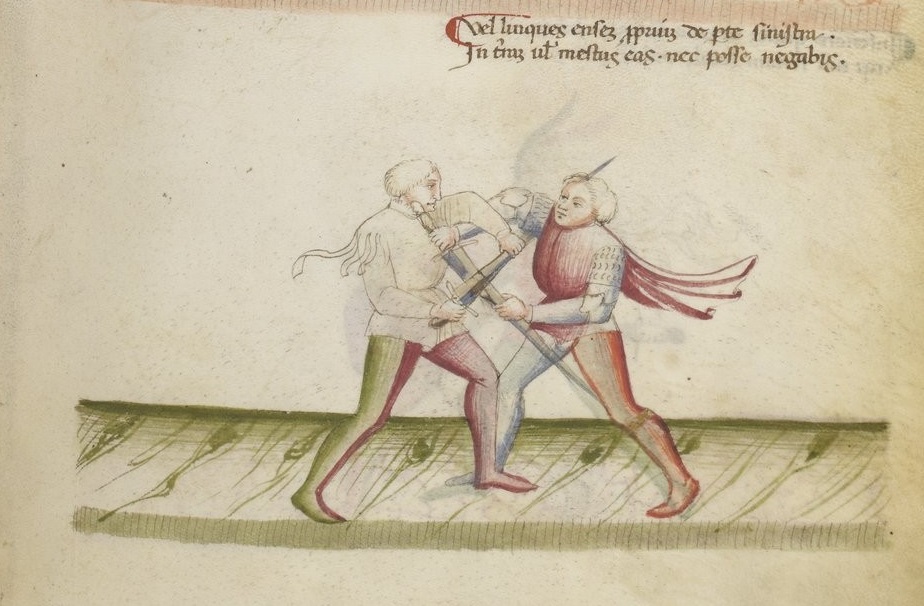 Vel linques ensez ꝓpruiz de pte sinistra.
In tr̃az ul' mestus eas. nec posse negabis.